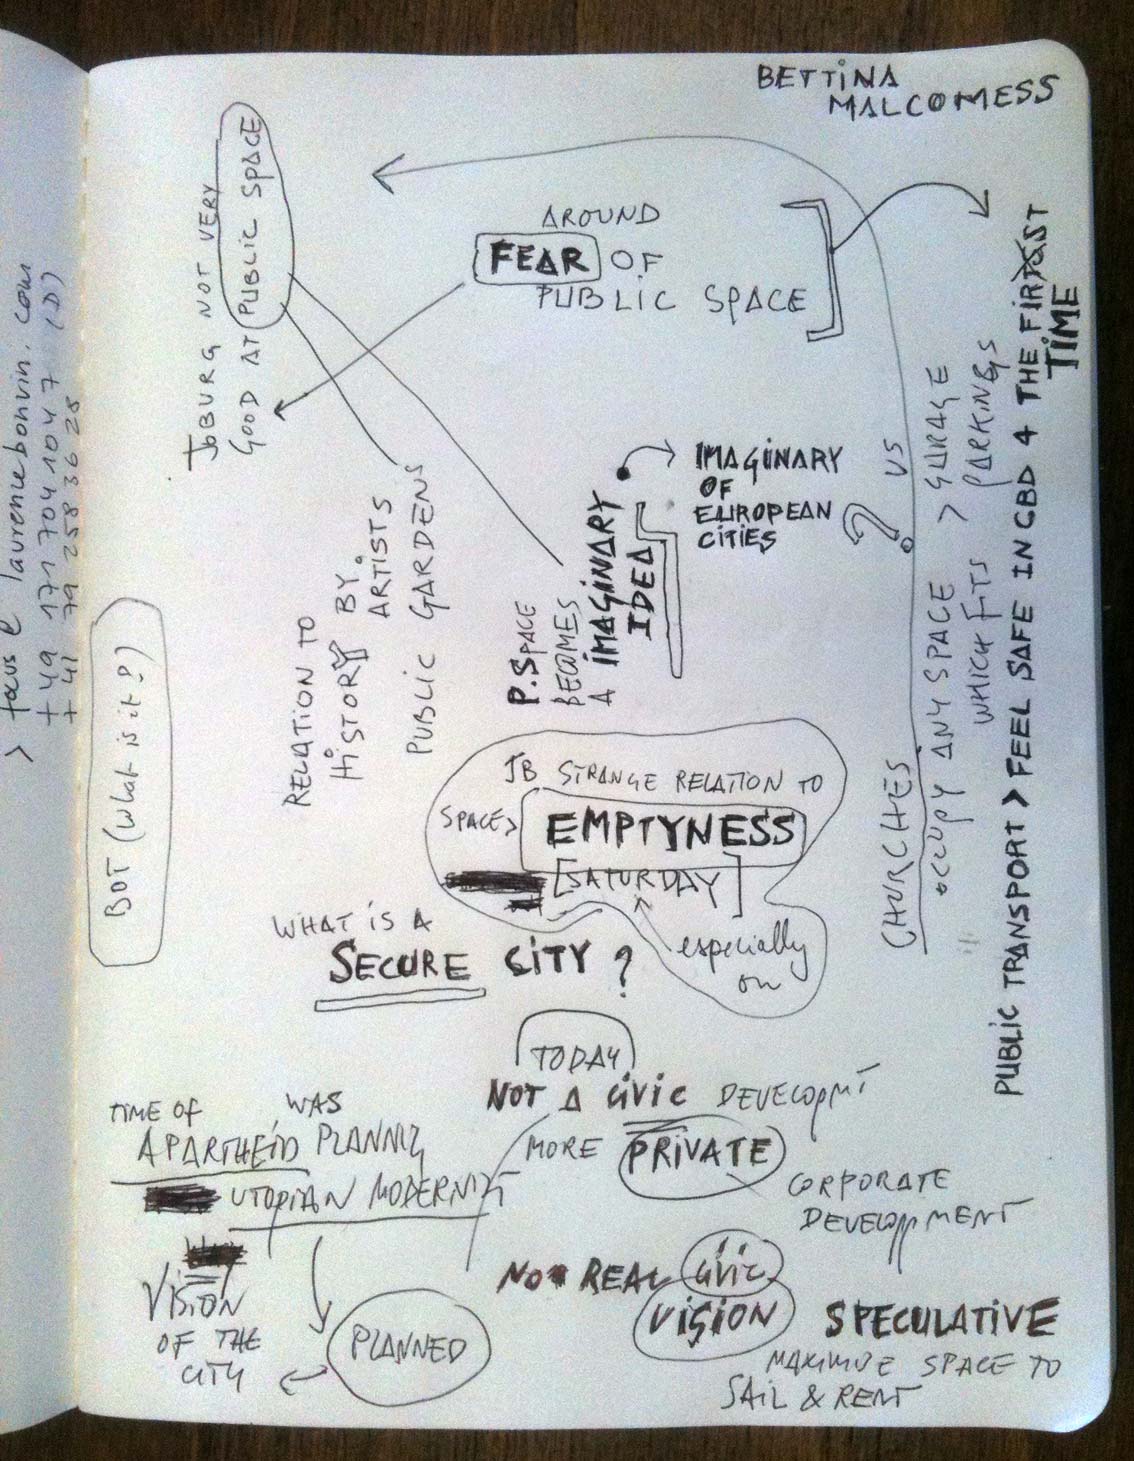 BETTINA
MALCOMESS
JOBURG NOT VERY
GOOD AT PUBLIC SPACE
AROUND
FEAR OF
PUBLIC SPACE
PUBLIC TRANSPORT > FEEL SAFE IN CBD 4 THE FIRST
TIME
IMAGINARY
OF
EUROPEAN
CITIES
?
VS
P. SPACE
BECOMES
A IMAGINARY
IDEA
RELATION TO
HISTORY BY
ARTISTS
PUBLIC GARDENS
CHURCHES
OCCUPY ANY SPACE > GARAGE
WHICH FITS PARKINGS
> focus @ laurencebonvin.com
+ 49 171 704 1047 (D)
+ 41 79 258 36 28
BOT (What is it?)
JB STRANGE RELATION TO
SPACE > EMPTYNESS
[SATURDAY]
especially
on
WHAT IS A
SECURE CITY ?
TODAY
NOT A CIVIC DEVELOPMT
MORE PRIVATE
CORPORATE
DEVELOPPMENT
NO REAL CIVIC
VISION
SPECULATIVE
MAXIMIZE SPACE TO
SAIL & RENT
TIME OF WAS
APARTHEID PLANNIG
UTOPIAN MODERNIST
VISION
OF THE
CITY
PLANNED